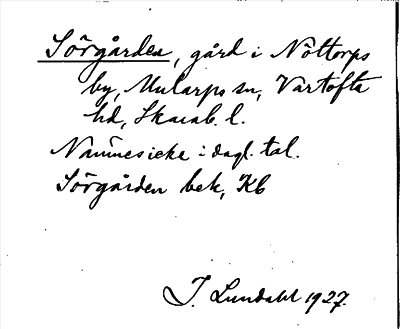 Sörgården, gård i Nöttorps
by, Mularps sn, Vartofta
hd, Skarab. l.
Namnes icke i dagl. tal.
Sörgården bek, Kb
J. Lundahl 1927.